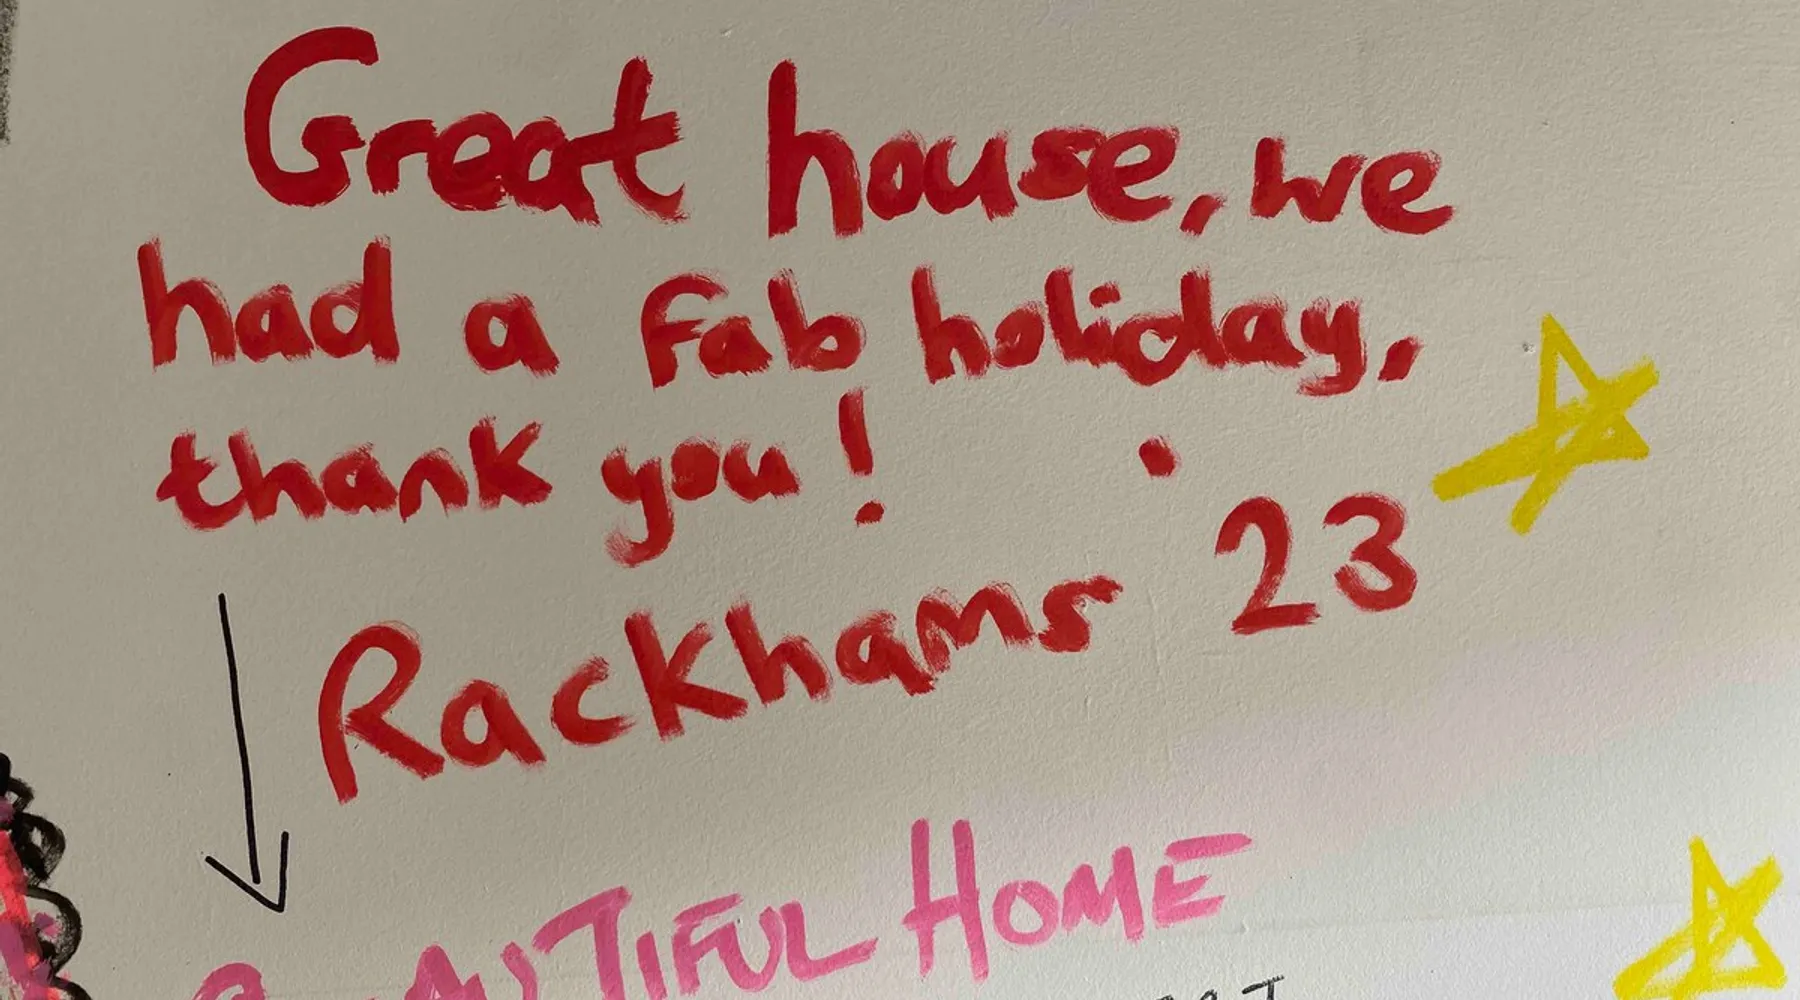 Great house, we
had a fab holiday,
thank you!
Rackhams 23
BEAUTIFUL HOME